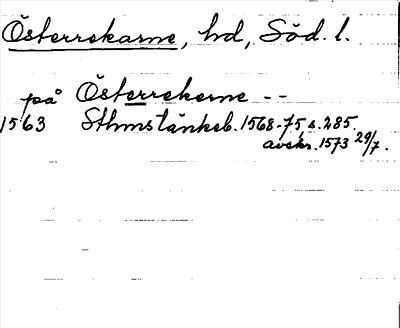 Österrekarne, hd, Söd. l.
på Österrekerne --
1563 Sthms tänkeb. 1568-75, s. 285.
avskr. 1573 29/7.